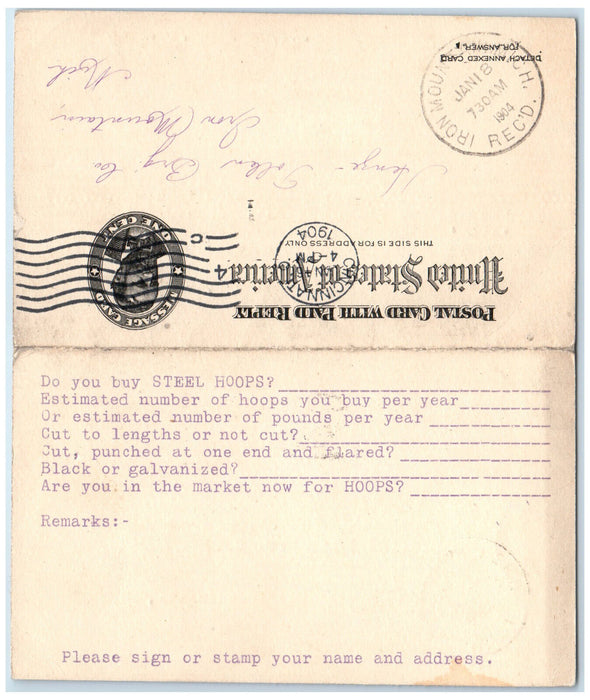 DETACH ANNEXED CARD
FOR ANSWER.
IRON MOUN CH.
JAN 18
730AM
1904
REC'D.
POSTAL CARD WITH PAID REPLY
United States of America
THIS SIDE IS FOR ADDRESS ONLY
MESSAGE CARD
ONE CENT
CINCINNA
4-PM
1904
C
4
Brg Co
Iron Mountain,
Mich
Do you buy STEEL HOOPS?
Estimated number of hoops you buy per year
Or estimated number of pounds per year
Cut to lengths or not cut?
Cut, punched at one end and flared?
Black or galvanized?
Are you in the market now for HOOPS?
Remarks:-
Please sign or stamp your name and address.